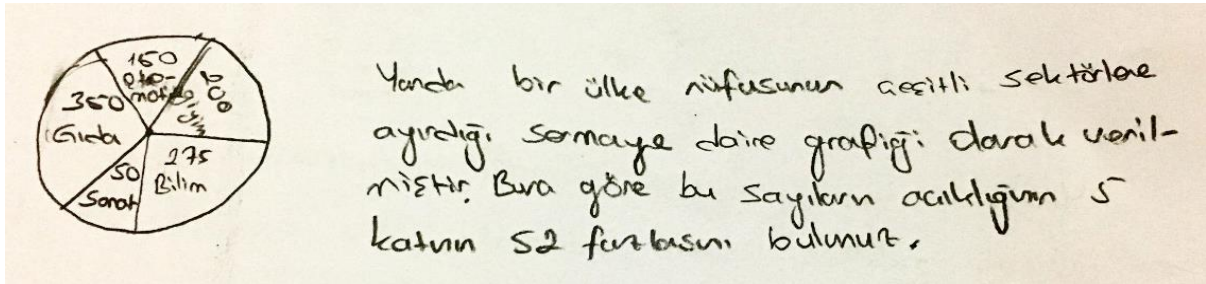 150
oto-
motiv
200
Giyim
350
Gıda
50
Sanat
275
Bilim
Yanda bir ülke nüfusunun çeşitli sektörlere
ayırdığı sermaye daire grafiği olarak veril-
miştir. Buna göre bu sayıların açıklığının 5
katının 52 fazlasını bulunuz.